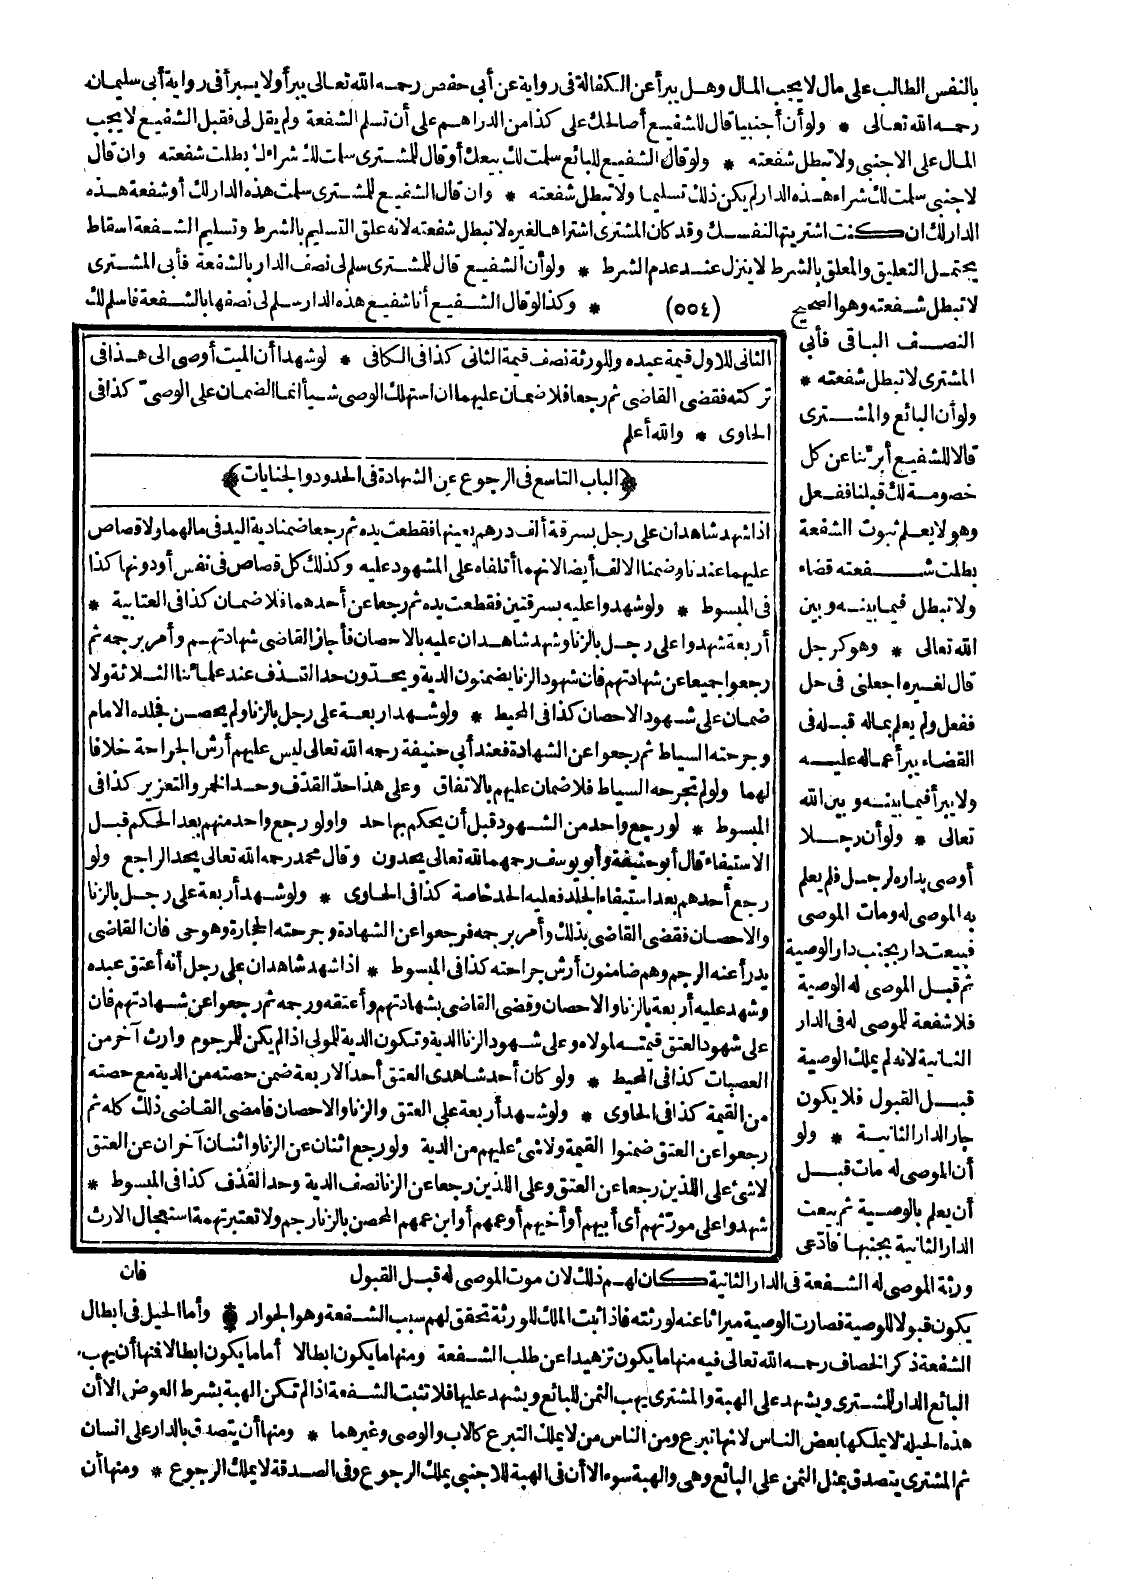 بالنفس الطالب على مال لا يجب المال وهل يبرأ عن الكفالة فى رواية عن أبى حفص رحمه الله تعالى يبرأ ولا يبرأ فى رواية أبى سليمان
رحمه الله تعالى * ولو أن أجنبيا قال للشفيع أصالحك على كذا من الدراهم على أن تسلم الشفعة ولم يقل لى فقبل الشفيع لا يجب
المال على الاجنبى ولا تبطل شفعته * ولو قال الشفيع للبائع سلمت لك بيعك أو قال للمشترى سلمت لك شراءك بطلت شفعته وان قال
لاجنبى سلمت لك شراء هذه الدار لم يكن ذلك تسليما ولا تبطل شفعته * وان قال الشفيع للمشترى سلمت هذه الدار لك أو شفعة هذه
الدار لك ان كنت اشتريتها لنفسك وقد كان المشترى اشتراها لغيره لا تبطل شفعته لانه علق التسليم بالشرط وتسليم الشفعة اسقاط
يحتمل التعليق والمعلق بالشرط لا ينزل عند عدم الشرط * ولو أن الشفيع قال للمشترى سلم لى نصف الدار بالشفعة فأبى المشترى
لا تبطل شفعته وهو الصحيح (٥٥٤) * وكذا لو قال الشفيع أنا شفيع هذه الدار سلم لى نصفها بالشفعة فاسلم لك
النصف الباقى فأبى
المشترى لا تبطل شفعته *
ولو أن البائع والمشترى
قالا للشفيع أبرئنا عن كل
خصومة لك قبلنا ففعل
وهو لا يعلم ثبوت الشفعة
بطلت شفعته قضاء
ولا تبطل فيما بينه وبين
الله تعالى * وهو كرجل
قال لغيره اجعلنى فى حل
ففعل ولم يعلم بماله قبله فى
القضاء يبرأ عما له عليه
ولا يبرأ فيما بينه وبين الله
تعالى * ولو أن رجلا
أوصى بداره لرجل فلم يعلم
به الموصى له ومات الموصى
فبيعت دار بجنب دار الوصية
ثم قبل الموصى له الوصية
فلا شفعة للموصى له فى الدار
الثانية لانه لم يملك الوصية
قبل القبول فلا يكون
جار الدار الثانية * ولو
أن الموصى له مات قبل
أن يعلم بالوصية ثم بيعت
الدار الثانية بجنبها فادّعى
الثانى للاول قيمة عبده وللورثة نصف قيمة الثانى كذا فى الكافى * لو شهدا أن الميت أوصى الى هذا فى
تركته فقضى القاضى ثم رجعا فلا ضمان عليهما ان استهلك الوصى شيأ انما الضمان على الوصىّ كذا فى
الحاوى * والله أعلم
﴿الباب التاسع فى الرجوع عن الشهادة فى الحدود والجنايات﴾
اذا شهد شاهدان على رجل بسرقة ألف درهم بعينها فقطعت يده ثم رجعا ضمنا دية اليد فى مالهما ولا قصاص
عليهما عندنا وضمنا الالف أيضا لانهما أتلفاه على المشهود عليه وكذلك كل قصاص فى نفس أو دونها كذا
فى المبسوط * ولو شهدوا عليه بسرقتين فقطعت يده ثم رجعا عن أحدهما فلا ضمان كذا فى العتابية *
أربعة شهدوا على رجل بالزنا وشهد شاهدان عليه بالاحصان فأجاز القاضى شهادتهم وأمر برجمه ثم
رجعوا جميعا عن شهادتهم فان شهود الزنا يضمنون الدية ويحدّون حد القذف عند علمائنا الثلاثة ولا
ضمان على شهود الاحصان كذا فى المحيط * ولو شهد اربعة على رجل بالزنا ولم يحصن فجلده الامام
وجرحته السياط ثم رجعوا عن الشهادة فعند أبى حنيفة رحمه الله تعالى ليس عليهم أرش الجراحة خلافا
لهما ولو لم تجرحه السياط فلا ضمان عليهم بالاتفاق وعلى هذا حدّ القذف وحد الخمر والتعزير كذا فى
المبسوط * لو رجع واحد من الشهود قبل أن يحكم بها حد واولو رجع واحد منهم بعد الحكم قبل
الاستيفاء قال أبو حنيفة وأبو يوسف رحمهما الله تعالى يحدون وقال محمد رحمه الله تعالى يحد الراجع ولو
رجع أحدهم بعد استيفاء الجلد فعليه الحد خاصة كذا فى الحاوى * ولو شهد أربعة على رجل بالزنا
والاحصان فقضى القاضى بذلك وأمر برجمه فرجعوا عن الشهادة وجرحته الحجارة وهو حى فان القاضى
يدرأ عنه الرجم وهم ضامنون أرش جراحته كذا فى المبسوط * اذا شهد شاهدان على رجل أنه أعتق عبده
وشهد عليه أربعة بالزنا والاحصان وقضى القاضى بشهادتهم وأعتقه ورجمه ثم رجعوا عن شهادتهم فان
على شهود العتق قيمته لمولاه وعلى شهود الزنا الدية وتكون الدية للمولى اذا لم يكن للمرجوم وارث آخر من
العصبات كذا فى المحيط * ولو كان أحد شاهدى العتق أحد الاربعة ضمن حصته من الدية مع حصته
من القيمة كذا فى الحاوى * ولو شهد أربعة على العتق والزنا والاحصان فامضى القاضى ذلك كله ثم
رجعوا عن العتق ضمنوا القيمة ولا شئ عليهم من الدية ولو رجع اثنان عن الزنا واثنان آخران عن العتق
لا شئ على اللذين رجعا عن العتق وعلى اللذين رجعا عن الزنا نصف الدية وحد القذف كذا فى المبسوط *
شهدوا على مورّثهم أى أبيهم أو أخيهم أو عمهم أو ابن عمهم المحصن بالزنا رجم ولا تعتبر تهمة استعجال الارث
فان
ورثة الموصى له الشفعة فى الدار الثانية كان لهم ذلك لان موت الموصى له قبل القبول
يكون قبولا للوصية فصارت الوصية ميراثا عنه لورثته فاذا ثبت الملك للورثة تحقق لهم سبب الشفعة وهو الجوار * وأما الحيل فى ابطال
الشفعة ذكر الخصاف رحمه الله تعالى فيه منها ما يكون تزهيدا عن طلب الشفعة ومنها ما يكون ابطالا أما ما يكون ابطالا فمنها أن يهب
البائع الدار للمشترى ويشهد على الهبة والمشترى يهب الثمن للبائع ويشهد عليها فلا تثبت الشفعة اذا لم تكن الهبة بشرط العوض الا أن
هذه الحيلة لا يملكها بعض الناس لانها تبرع ومن الناس من لا يملك التبرع كالاب والوصى وغيرهما * ومنها أن يتصدق بالدار على انسان
ثم المشترى يتصدق بمثل الثمن على البائع وهى والهبة سواء الا أن فى الهبة للاجنبى يملك الرجوع وفى الصدقة لا يملك الرجوع * ومنها أن